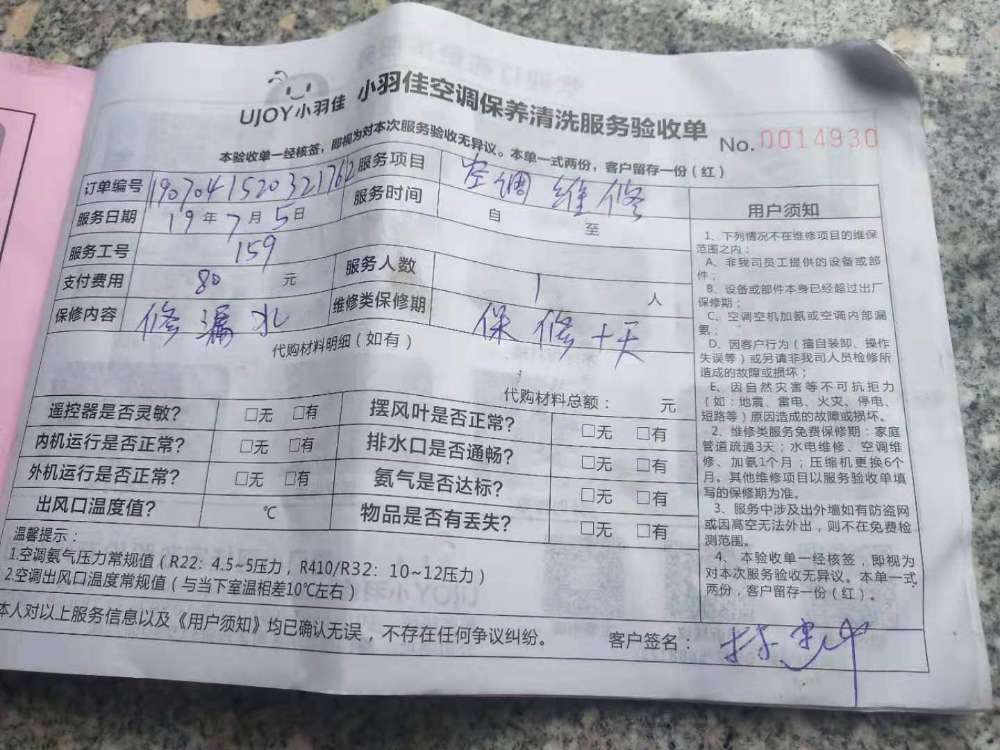 UJOY小羽佳 小羽佳空调保养清洗服务验收单 No.0014930
本验收单一经核签，即视为对本次服务验收无异议。本单一式两份，客户留存一份（红）
订单编号 190704152032176 服务项目 空调维修
服务日期 19年7月5日 服务时间 自 至
服务工号 159
支付费用 80 元 服务人数 1 人
保修内容 修漏水 维修类保修期 保修十天
代购材料明细（如有）
代购材料总额： 元
遥控器是否灵敏? □无 □有 摆风叶是否正常? □无 □有
内机运行是否正常? □无 □有 排水口是否通畅? □无 □有
外机运行是否正常? □无 □有 氨气是否达标? □无 □有
出风口温度值? ℃ 物品是否有丢失? □无 □有
温馨提示：
1.空调氨气压力常规值（R22：4.5~5压力，R410/R32：10~12压力）
2.空调出风口温度常规值（与当下室温相差10℃左右）
本人对以上服务信息以及《用户须知》均已确认无误，不存在任何争议纠纷。 客户签名：
用户须知
1、下列情况不在维修项目的维保
范围之内：
A、非我司员工提供的设备或部
件；
B、设备或部件本身已经超过出厂
保修期；
C、空调空机加氨或空调内部漏
氨；
D、因客户行为（擅自装卸、操作
失误等）或另请非我司人员检修所
造成的故障或损坏；
E、因自然灾害等不可抗拒力
（如：地震、雷电、火灾、停电、
短路等）原因造成的故障或损坏。
2、维修类服务免费保修期：家庭
管道疏通3天；水电维修、空调维
修、加氨1个月；压缩机更换6个
月。其他维修项目以服务验收单填
写的保修期为准。
3、服务中涉及出外墙如有防盗网
或因高空无法外出，则不在免费检
测范围。
4、本验收单一经核签，即视为
对本次服务验收无异议。本单一式
两份，客户留存一份（红）。